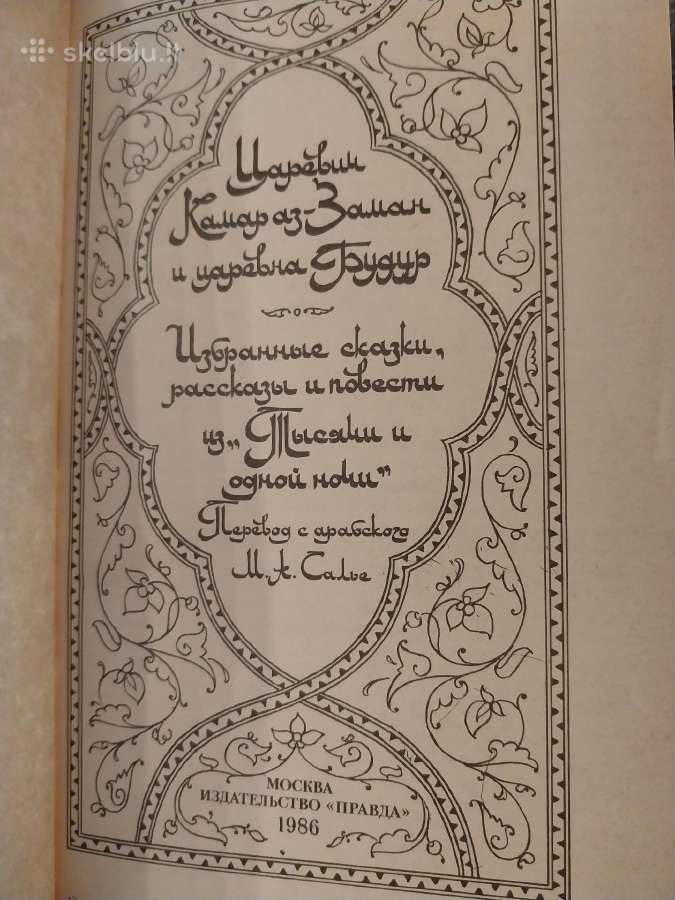 skelbiu.lt
Царевич
Камар аз-Заман
и царевна Будур
Избранные сказки,
рассказы и повести
из „Тысячи и
одной ночи”
Перевод с арабского
М. А. Салье
МОСКВА
ИЗДАТЕЛЬСТВО «ПРАВДА»
1986